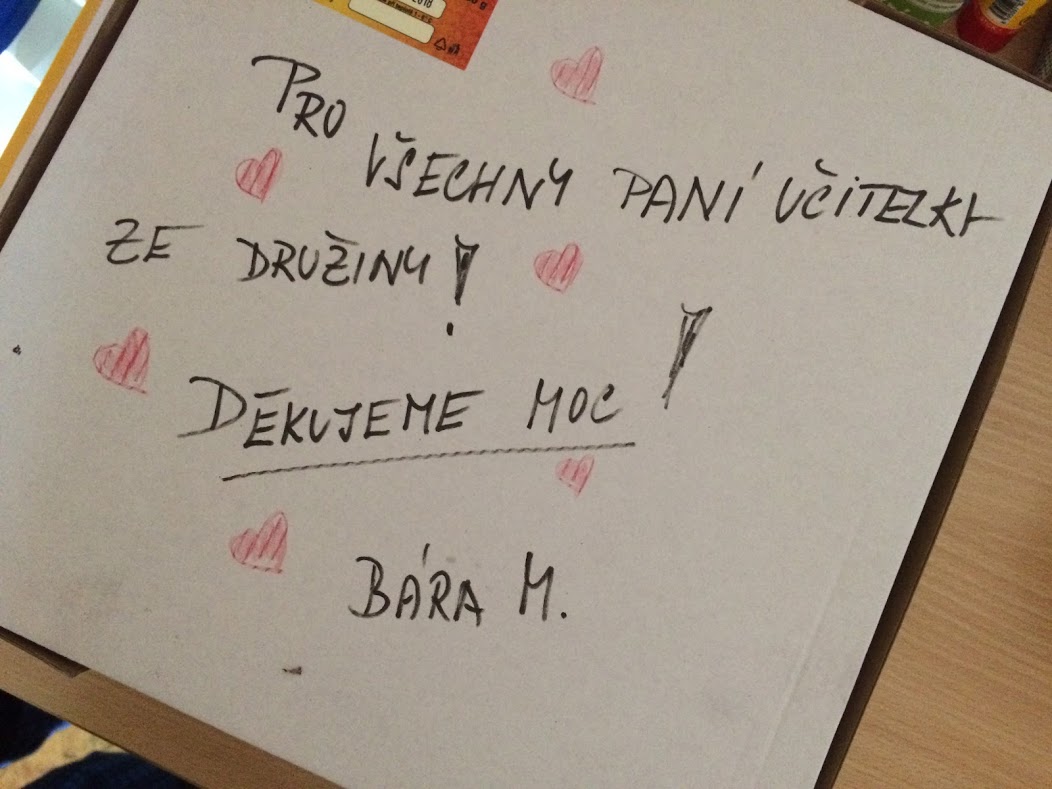 2018
PRO
VŠECHNY PANÍ UČITELKY
ZE DRUŽINY!
DĚKUJEME MOC!
BÁRA M.